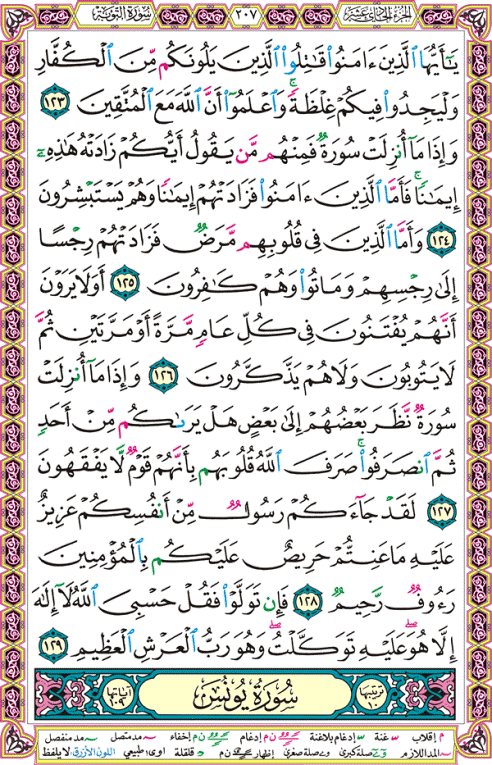 الجزء الحادي عشر ٢٠٧ سورة التوبة
يَٰٓأَيُّهَا ٱلَّذِينَ ءَامَنُوا۟ قَٰتِلُوا۟ ٱلَّذِينَ يَلُونَكُم مِّنَ ٱلْكُفَّارِ
وَلْيَجِدُوا۟ فِيكُمْ غِلْظَةً ۚ وَٱعْلَمُوٓا۟ أَنَّ ٱللَّهَ مَعَ ٱلْمُتَّقِينَ ١٢٣
وَإِذَا مَآ أُنزِلَتْ سُورَةٌ فَمِنْهُم مَّن يَقُولُ أَيُّكُمْ زَادَتْهُ هَٰذِهِۦٓ
إِيمَٰنًا ۚ فَأَمَّا ٱلَّذِينَ ءَامَنُوا۟ فَزَادَتْهُمْ إِيمَٰنًا وَهُمْ يَسْتَبْشِرُونَ
١٢٤ وَأَمَّا ٱلَّذِينَ فِى قُلُوبِهِم مَّرَضٌ فَزَادَتْهُمْ رِجْسًا
إِلَىٰ رِجْسِهِمْ وَمَاتُوا۟ وَهُمْ كَٰفِرُونَ ١٢٥ أَوَلَا يَرَوْنَ
أَنَّهُمْ يُفْتَنُونَ فِى كُلِّ عَامٍ مَّرَّةً أَوْ مَرَّتَيْنِ ثُمَّ
لَا يَتُوبُونَ وَلَا هُمْ يَذَّكَّرُونَ ١٢٦ وَإِذَا مَآ أُنزِلَتْ
سُورَةٌ نَّظَرَ بَعْضُهُمْ إِلَىٰ بَعْضٍ هَلْ يَرَىٰكُم مِّنْ أَحَدٍ
ثُمَّ ٱنصَرَفُوا۟ ۚ صَرَفَ ٱللَّهُ قُلُوبَهُم بِأَنَّهُمْ قَوْمٌ لَّا يَفْقَهُونَ
١٢٧ لَقَدْ جَآءَكُمْ رَسُولٌ مِّنْ أَنفُسِكُمْ عَزِيزٌ
عَلَيْهِ مَا عَنِتُّمْ حَرِيصٌ عَلَيْكُم بِٱلْمُؤْمِنِينَ
رَءُوفٌ رَّحِيمٌ ١٢٨ فَإِن تَوَلَّوْا۟ فَقُلْ حَسْبِىَ ٱللَّهُ لَآ إِلَٰهَ
إِلَّا هُوَ ۖ عَلَيْهِ تَوَكَّلْتُ ۖ وَهُوَ رَبُّ ٱلْعَرْشِ ٱلْعَظِيمِ ١٢٩
ترتيبها ١٠ سُورَةُ يُونُسَ آياتها ١٠٩
م إقلاب غنة إدغام بلاغنة ن م إدغام ن م إخفاء مد متصل مد منفصل
المد اللازم صلة كبرى وصلة صغرى إظهار قلقلة اوى طبيعي اللون الأزرق لا يلفظ